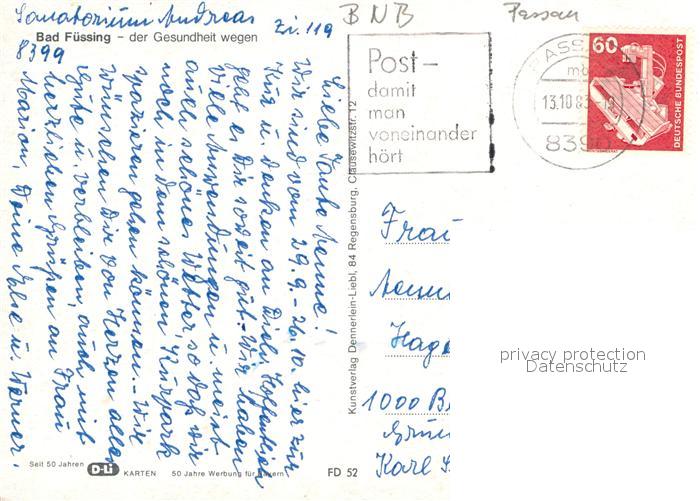 Sanatorium Andreas
Zi. 119
Bad Füssing – der Gesundheit wegen
8399
Liebe Tante Aenne!
Wir sind vom 29.9.-26.10. hier zur
Kur u. denken an Dich. Hoffentlich
geht es Dir soweit gut. - Wir haben
viele Anwendungen u. meist
auch schönes Wetter so daß wir
noch in dem schönen Kurpark
spazieren gehen können. - Wir
wünschen Dir von Herzen alles
Gute u. verbleiben, auch mit
herzlichen Grüßen an Frau
Marion, Deine Else u. Werner.
Seit 50 Jahren D-Li KARTEN 50 Jahre Werbung für Bayern
FD 52
Kunstverlag Dennerlein-Liebl, 84 Regensburg, Clausewitzstr. 12
BNB
Passau
Post-
damit
man
voneinander
hört
PASSAU
13.10.83
8390
60
DEUTSCHE BUNDESPOST
Frau
Aenn
Hag
1000 B
Karl
privacy protection
Datenschutz